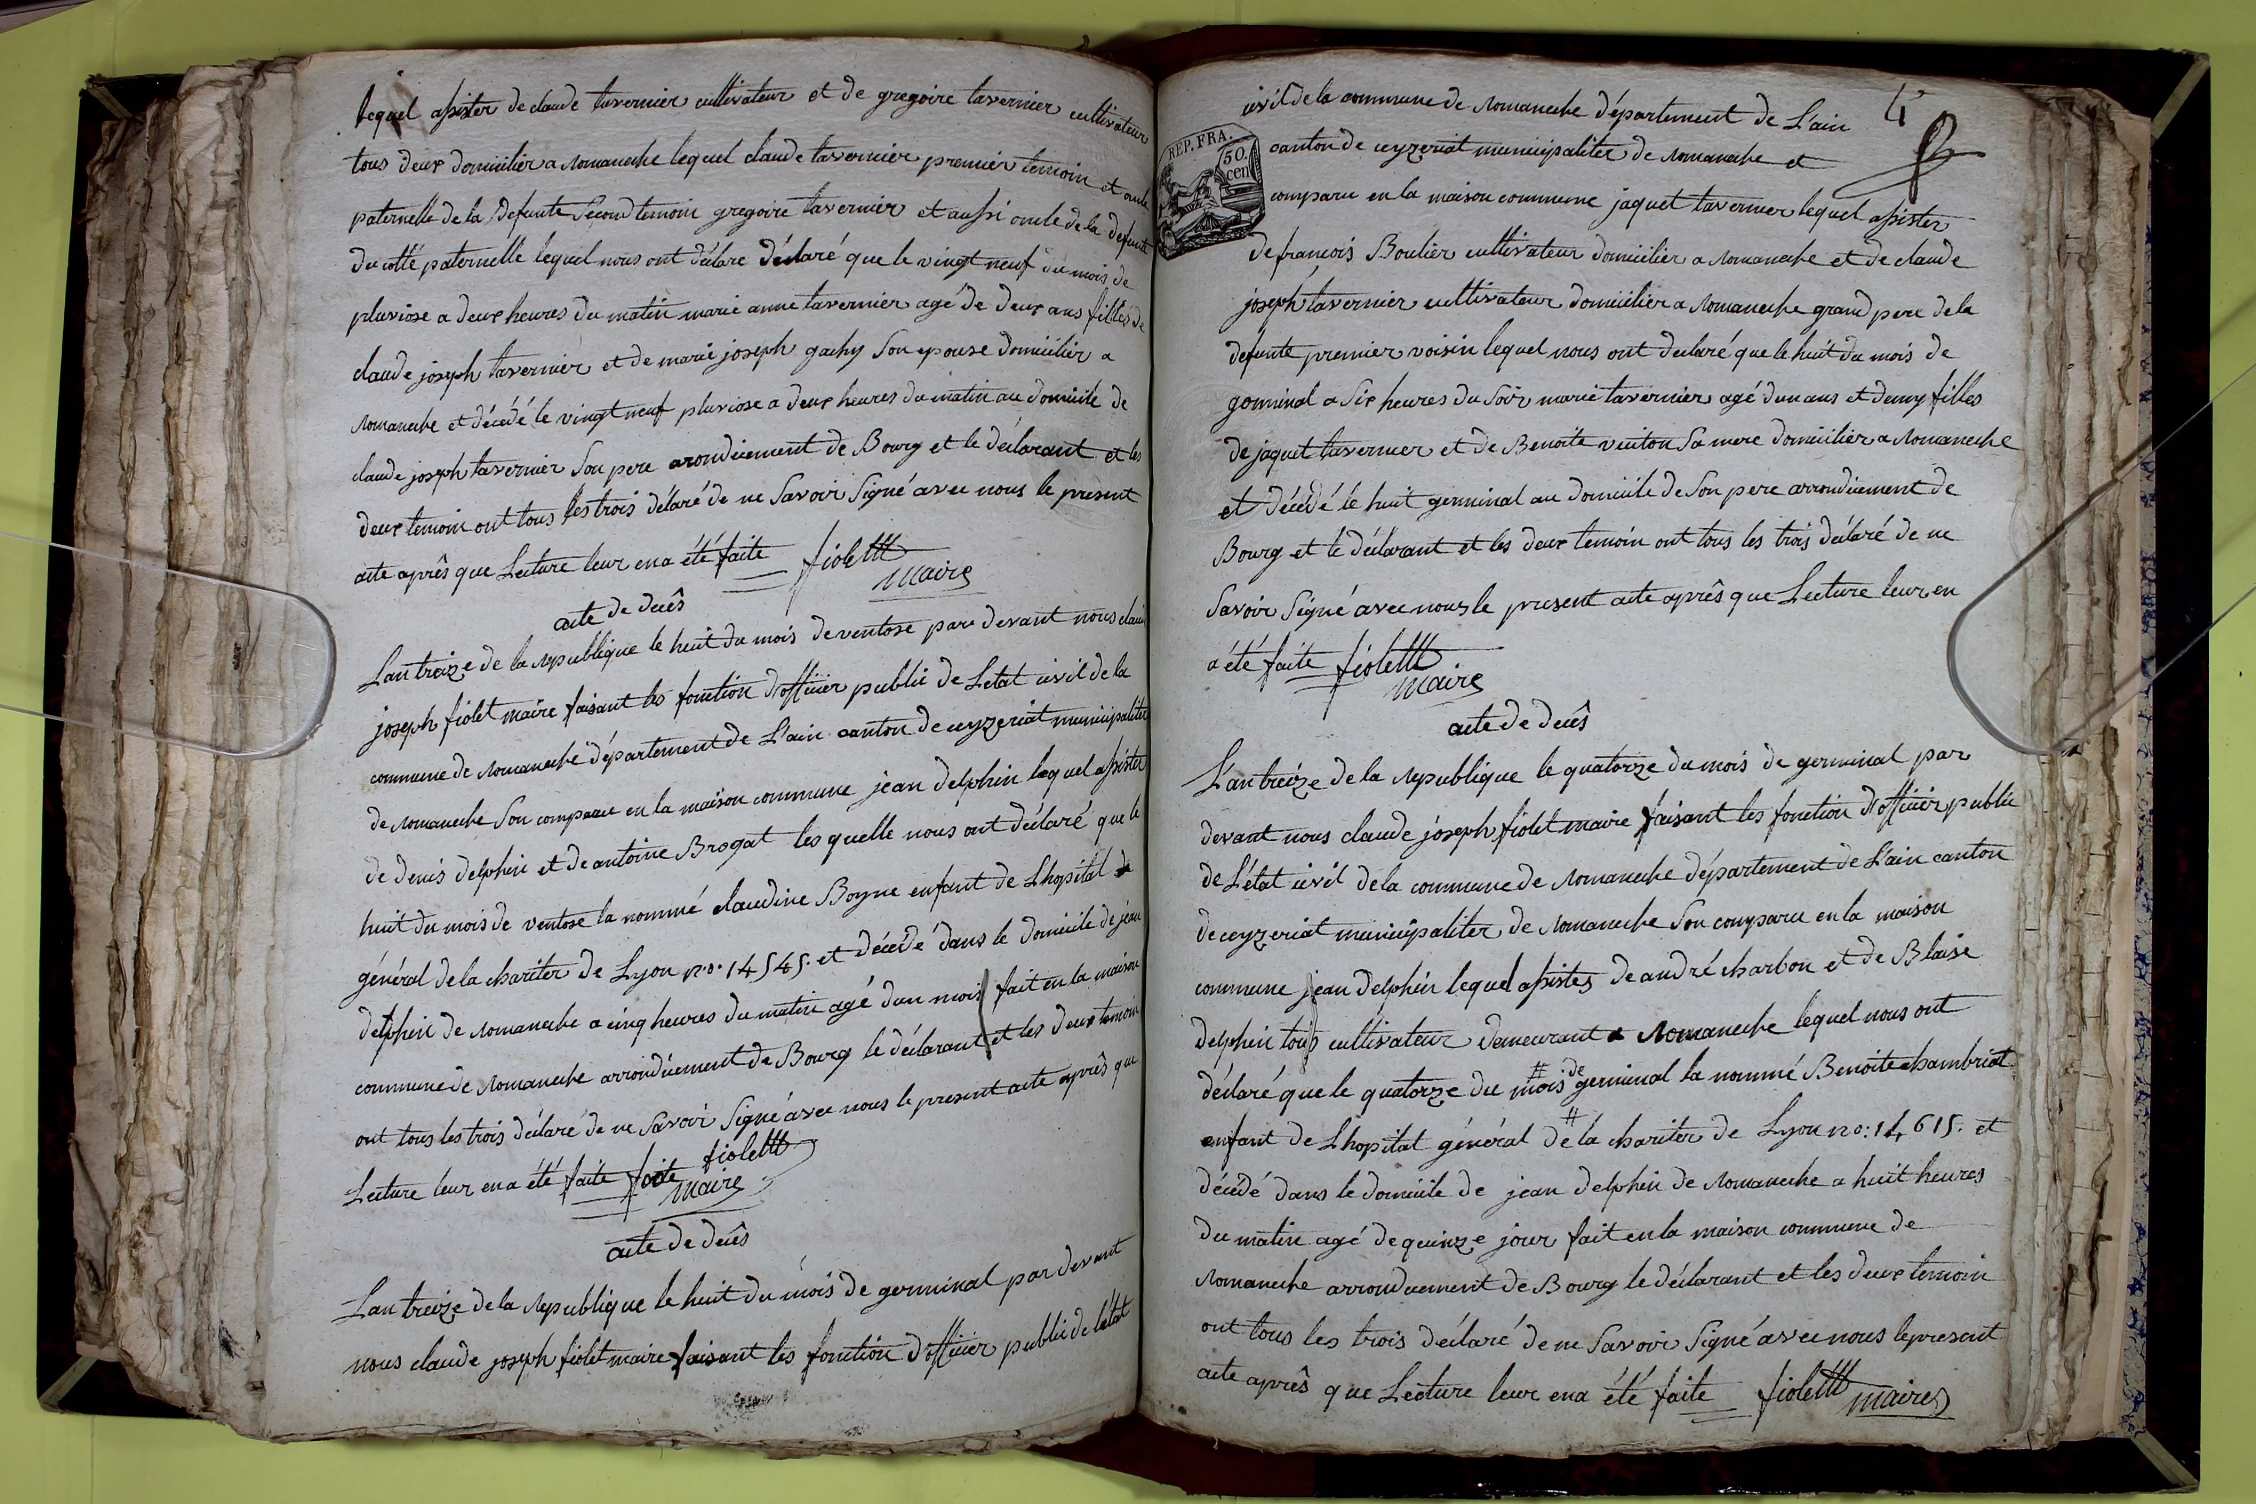 lequel assister de claude tavernier cultivateur et de gregoire tavernier cultivateur
tous deux domicilier a romaneche lequel claude tavernier premier temoin et oncle
paternelle de la defunte second temoin gregoire tavernier et aussi oncle de la defunte
du cotté paternelle lequel nous ont déclare déclaré que le vingt neuf du mois de
pluviose a deux heures du matin marie anne tavernier agé de deux ans filles de
claude joseph tavernier et de marie joseph gachy son epouse domicilier a
romaneche et décédé le vingt neuf pluviose a deux heures du matin au domicile de
claude joseph tavernier son pere arondicement de Bourg et le déclarant et les
deux temoin ont tous les trois délaré de ne savoir signé avec nous le present
acte aprês que Lecture leur en a été faite fiolettt
maire
acte de decês
Lan treize de la republique le huit du mois de ventose par devant nous claude
joseph fiolet maire faisant les fonction d'officier public de Letat civil de la
commune de romaneche département de L'ain canton de ceyzeriat municipaliter
de romaneche son comparu en la maison commune jean delphin lequel assister
de denis delphin et de antoine Brogat les quelle nous ont déclaré que le
huit du mois de ventose la nommé claudine Boyne enfant de Lhopital
général de la chariter de Lyon n.o. 14545. et décédé dans le domicile de jean
delphin de romaneche a cinq heures du matin agé dun mois fait en la maison
commune de romaneche arrondicement de Bourg le déclarant et les deux temoin
ont tous les trois déclaré de ne savoir signé avec nous le present acte aprês que
Lecture leur en a été faite foite fiolettt
maire
acte de decês
Lan treize de la republique le huit du mois de germinal par devant
nous claude joseph fiolet maire faisant les fonction d'officier public de létat
4
civil de la commune de romaneche département de L'ain
REP. FRA.
50.
cen
canton de ceyzeriat municipaliter de romaneche et
comparu en la maison commune jaquet tavernier lequel assister
de francois Boulier cultivateur domicilier a romaneche et de claude
joseph tavernier cultivateur domicilier a romaneche grand pere de la
defunte premier voisin lequel nous ont declaré que le huit du mois de
gominal a six heures du soir marie tavernier agé dun ans et demy filles
de jaquet tavernier et de Benoite vuiton sa mere domicilier a romaneche
et décédé le huit germinal au domicile de son pere arrondicement de
Bourg et le déclarant et les deux temoin ont tous les trois déclaré de ne
savoir signé avec nous le present acte aprês que Lecture leur en
a été faite fiolettt
maire
acte de decês
L'an treize de la republique le quatorze du mois de germinal par
devant nous claude joseph fiolet maire faisant les fonction d'officier public
de L'état civil de la commune de romaneche département de L'ain canton
de ceyzeriat municipaliter de romaneche son comparu en la maison
commune jean delphin lequel assister de andré charbon et de Blaise
delphin tous cultivateur demeurant a romaneche lequel nous ont
déclaré que le quatorze du mois de geminal la nommé Benoite chambriat
enfant de Lhopital général de la chariter de Lyon no: 14615. et
décédé dans le domicile de jean delphin de romaneche a huit heures
du matin agé de quinze jour fait en la maison commune de
romaneche arrondicement de Bourg le déclarant et les deux temoin
ont tous les trois déclaré de ne savoir signé avec nous le present
acte aprês que Lecture leur en a été faite fiolettt
maire